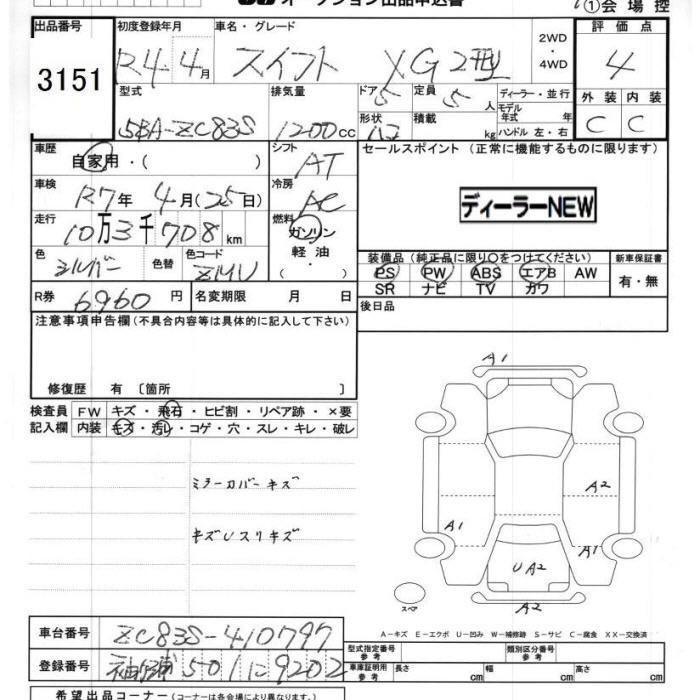 オークション出品申込書
①会場控
出品番号
3151
初度登録年月
R4.4月
車名・グレード
スイフト XG 2型
2WD
・
4WD
評価点
4
外装 内装
C C
型式
5BA-ZC83S
排気量
1200cc
ドア 5
形状
定員 5人
積載 kg
ディーラー・並行
モデル年式 年
ハンドル 左・右
車歴
自家用・( )
シフト
AT
車検
R7年 4月(25日)
冷房
AC
走行
10万3千708km
燃料
ガソリン
軽油
・
色
シルバー
色替
色コード
ZMU
R券
6960円
名変期限 月 日
セールスポイント (正常に機能するものに限ります)
ディーラーNEW
装備品 (純正品に限り○をつけてください)
PS PW ABS エアB AW
SR ナビ TV カワ
新車保証書
有・無
後日品
注意事項申告欄(不具合内容等は具体的に記入して下さい)
修復歴 有 〔箇所 〕
検査員
記入欄
FW キズ・飛石・ヒビ割・リペア跡・×要
内装 キズ・汚れ・コゲ・穴・スレ・キレ・破レ
ミラーカバーキズ
キズUスリキズ
A1
A2
A1
A1
UA2
A2
スペア
A-キズ E-エクボ U-凹み W-補修跡 S-サビ C-腐食 XX-交換済
車台番号
ZC83S-410797
登録番号
袖ヶ浦 501 に 9202
型式指定番号
参考
類別区分番号
参考
車庫証明用
参考
長さ cm
幅 cm
高さ cm
希望出品コーナー(コーナーは各会場により異なります。)